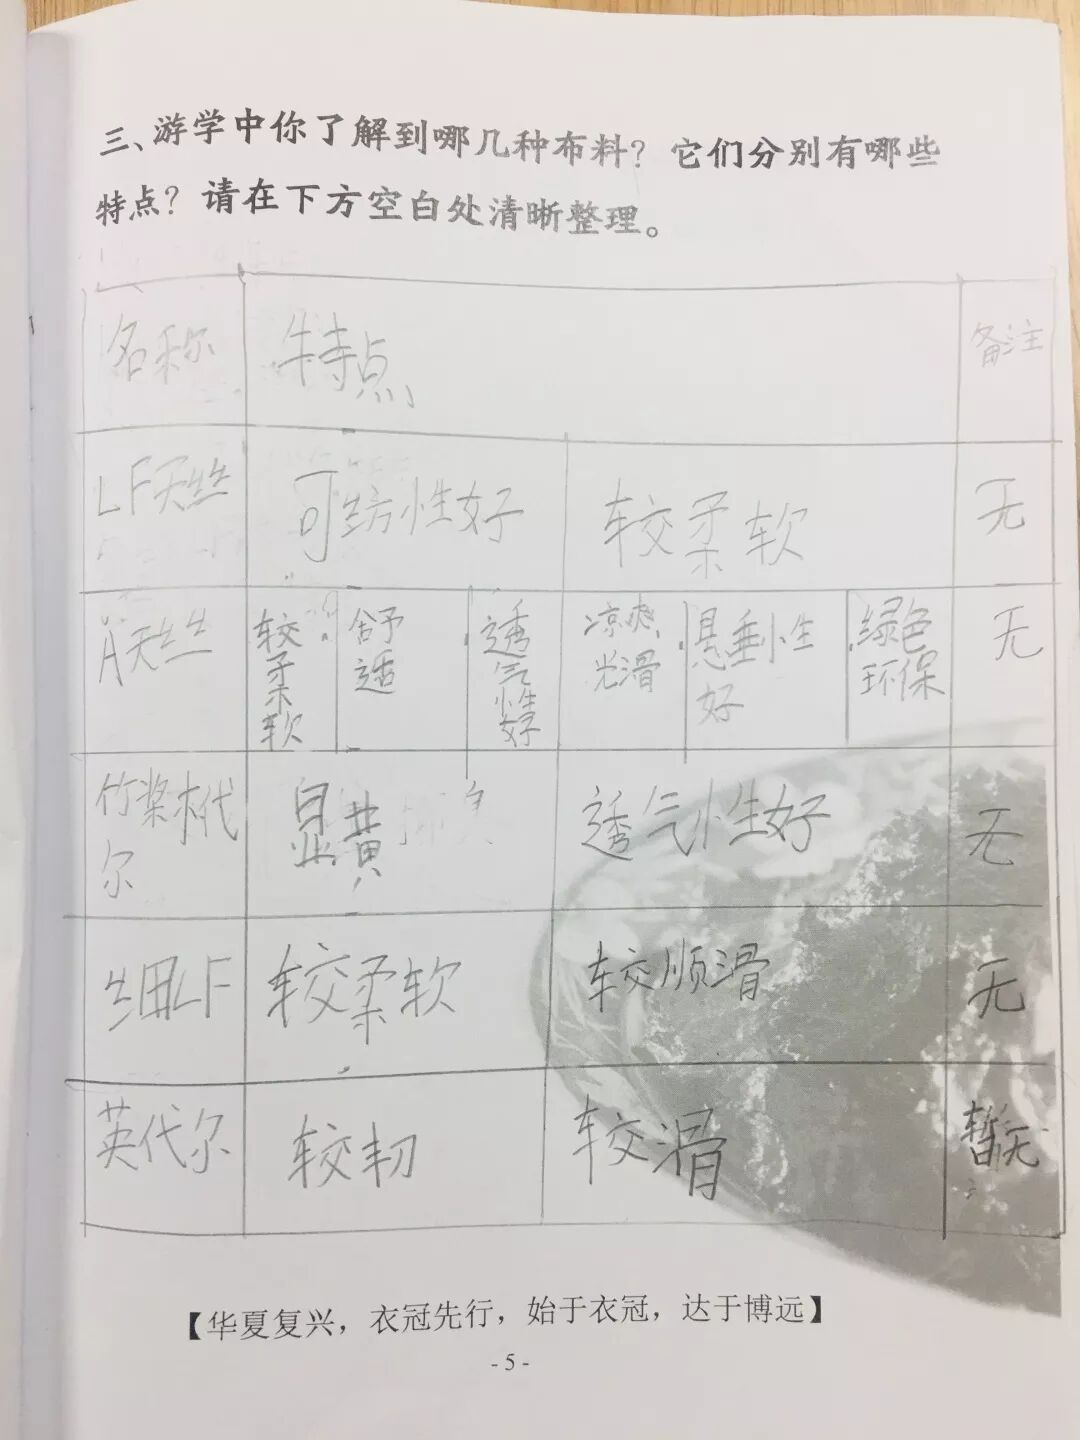 三、游学中你了解到哪几种布料？它们分别有哪些
特点？请在下方空白处清晰整理。
名称 特点 备注
LF天丝 可纺性好 较柔软 无
A天丝 较柔软 舒适 透气性好 凉爽光滑 悬垂性好 绿色环保 无
竹桨木代尔 显黄 透气性好 无
细LF 较柔软 较顺滑 无
英代尔 较韧 较滑 暂无
【华夏复兴，衣冠先行，始于衣冠，达于博远】
- 5 -